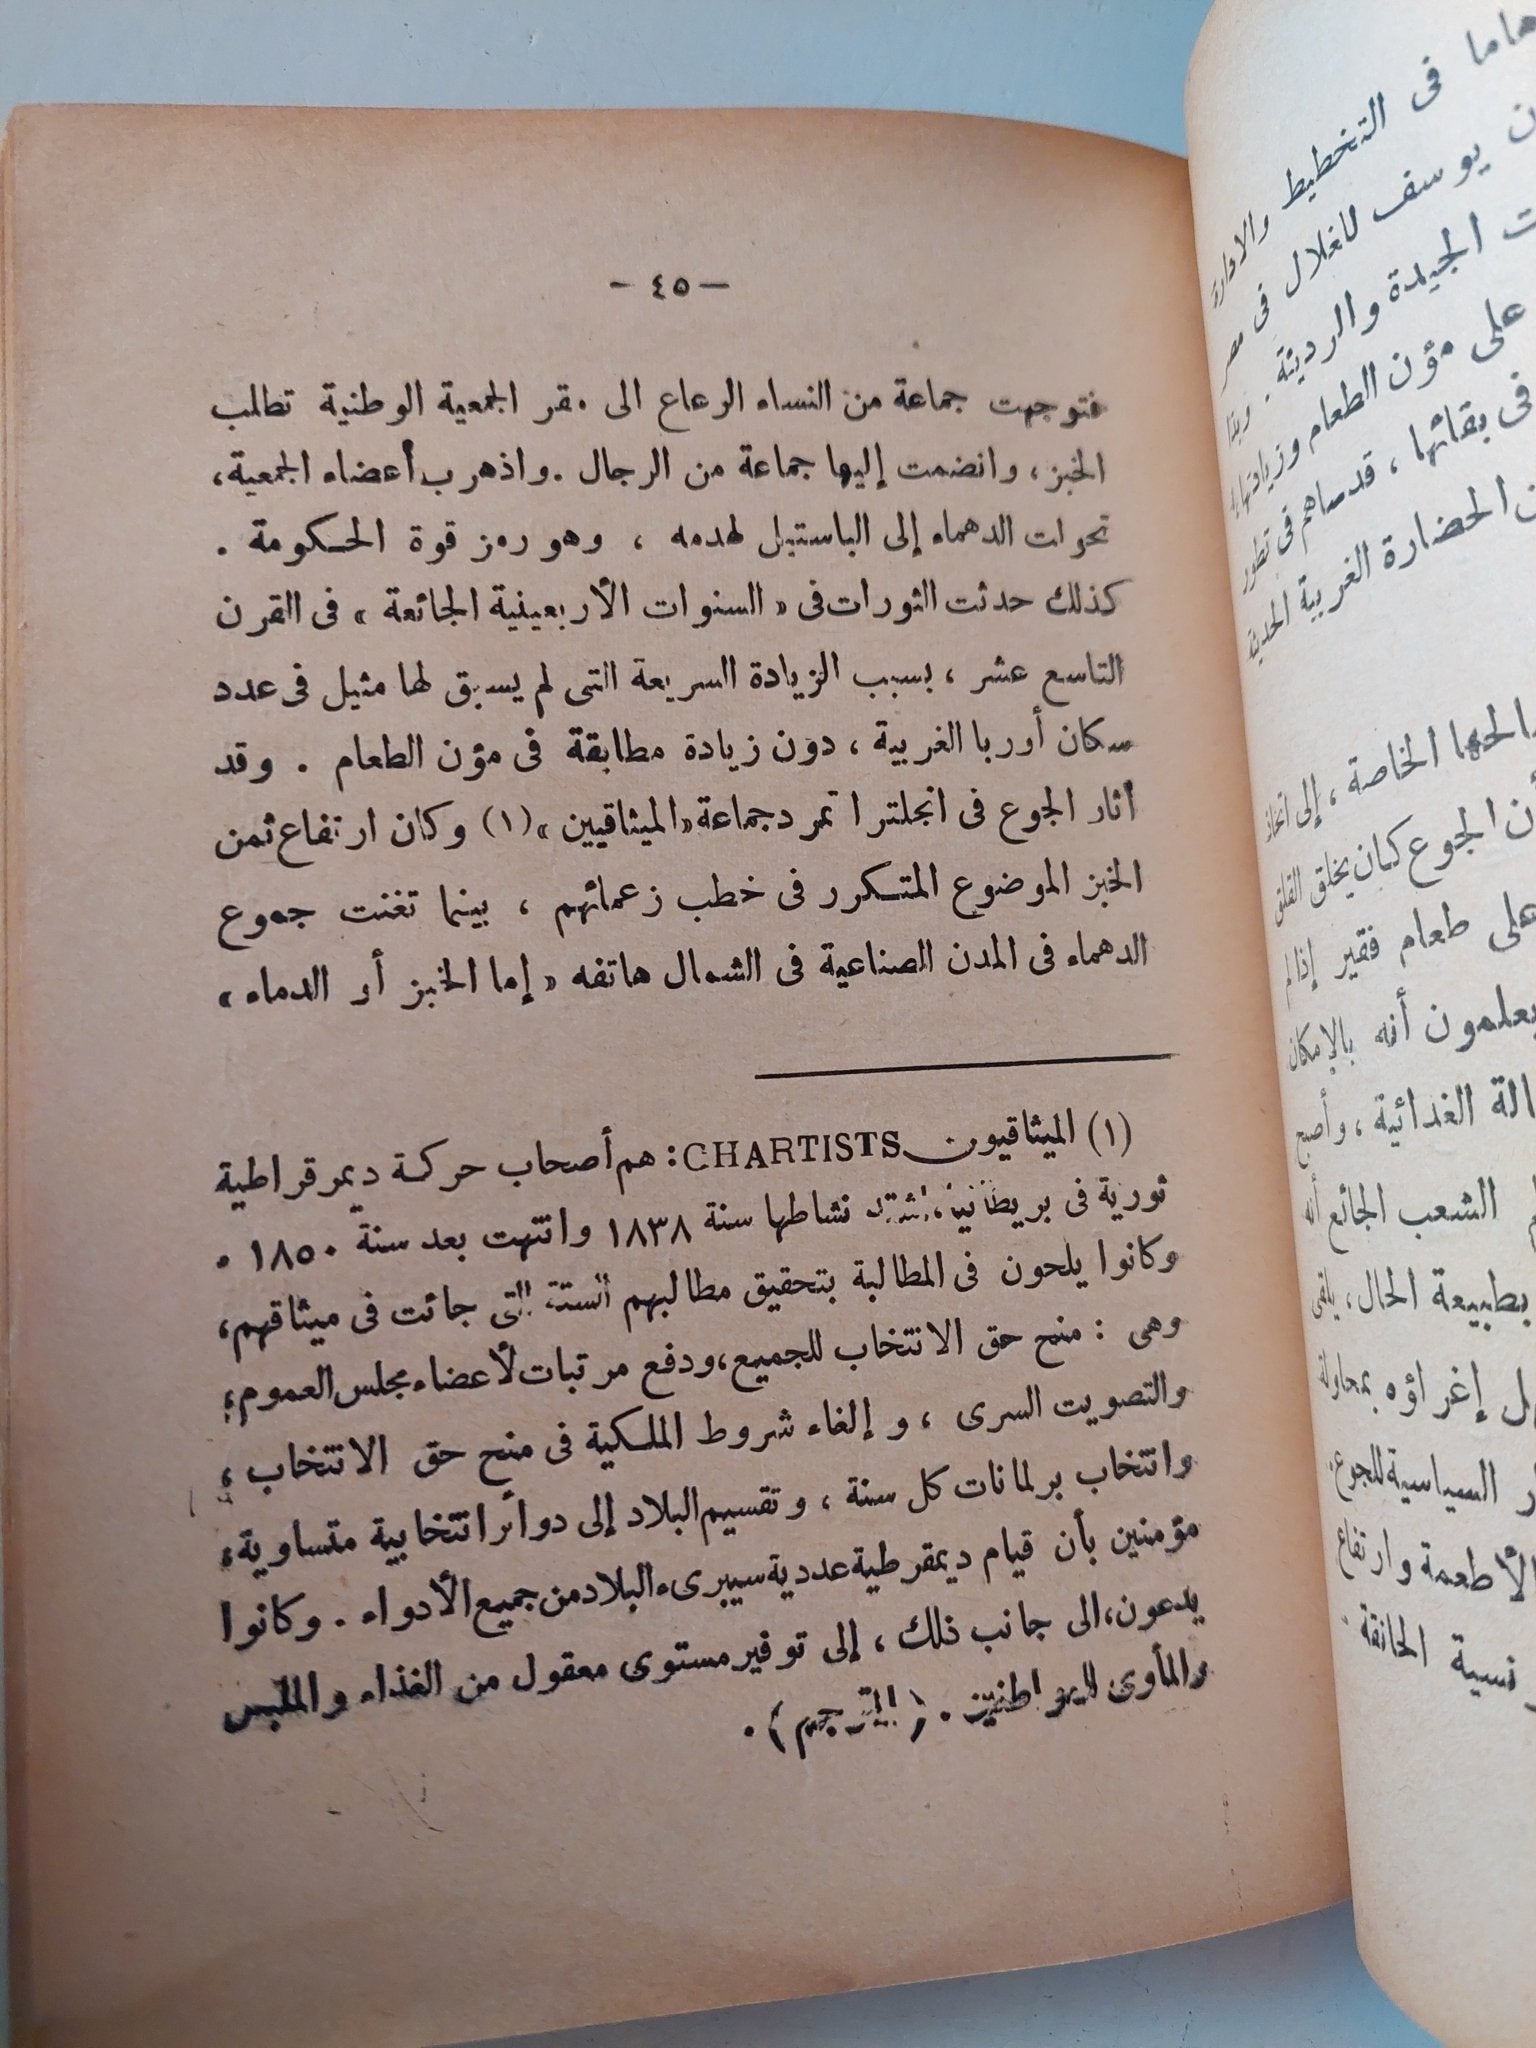 — ٤٥ —
فتوجهت جماعة من النساء الرعاع الى مقر الجمعية الوطنية تطلب
الخبز ، وانضمت إليها جماعة من الرجال . واذ هرب أعضاء الجمعية ،
تحولت الدهماء إلى الباستيل لهدمه ، وهو رمز قوة الحكومة .
كذلك حدثت الثورات فى « السنوات الأربعينية الجائعة » فى القرن
التاسع عشر ، بسبب الزيادة السريعة التى لم يسبق لها مثيل فى عدد
سكان أوربا الغربية ، دون زيادة مطابقة فى مؤن الطعام . وقد
أثار الجوع فى انجلترا تمرد جماعة « الميثاقيين » (١) وكان ارتفاع ثمن
الخبز الموضوع المتكرر فى خطب زعمائهم ، بينما تغنت جموع
الدهماء فى المدن الصناعية فى الشمال هاتفه « إما الخبز أو الدماء »
(١) الميثاقيون CHARTISTS : هم أصحاب حركة ديمرقراطية
ثورية فى بريطانيا ، اشتد نشاطها سنة ١٨٣٨ وانتهت بعد سنة ١٨٥٠ .
وكانوا يلحون فى المطالبة بتحقيق مطالبهم الستة التى جائت فى ميثاقهم ،
وهى : منح حق الانتخاب للجميع ، ودفع مرتبات لأعضاء مجلس العموم ،
والتصويت السرى ، و إلغاء شروط الملكية فى منح حق الانتخاب ،
وانتخاب برلمانات كل سنة ، وتقسيم البلاد إلى دوائر انتخابية متساوية ،
مؤمنين بأن قيام ديمقرطية عددية سيبرىء البلاد من جميع الأدواء . وكانوا
يدعون ، الى جانب ذلك ، إلى توفير مستوى معقول من الغذاء والملبس
والمأوى للمواطنين . ( المترجم ) .
هاما فى التخطيط والادارة
يوسف للغلال فى مصر
الجيدة والرديئة .
على مؤن الطعام وزيادتها
فى بقائها ، قد ساهم فى تطور
الحضارة الغربية الحديثة
الخاصة ، إلى اتخاذ
الجوع كان يخلق القلق
على طعام فقير إذا لم
يعلمون أنه بالإمكان
الغذائية ، وأصبح
الشعب الجائع أنه
بطبيعة الحال ، يلقى
إغراؤه بمحاولة
السياسية للجوع .
الأطعمة وارتفاع
الحانقة